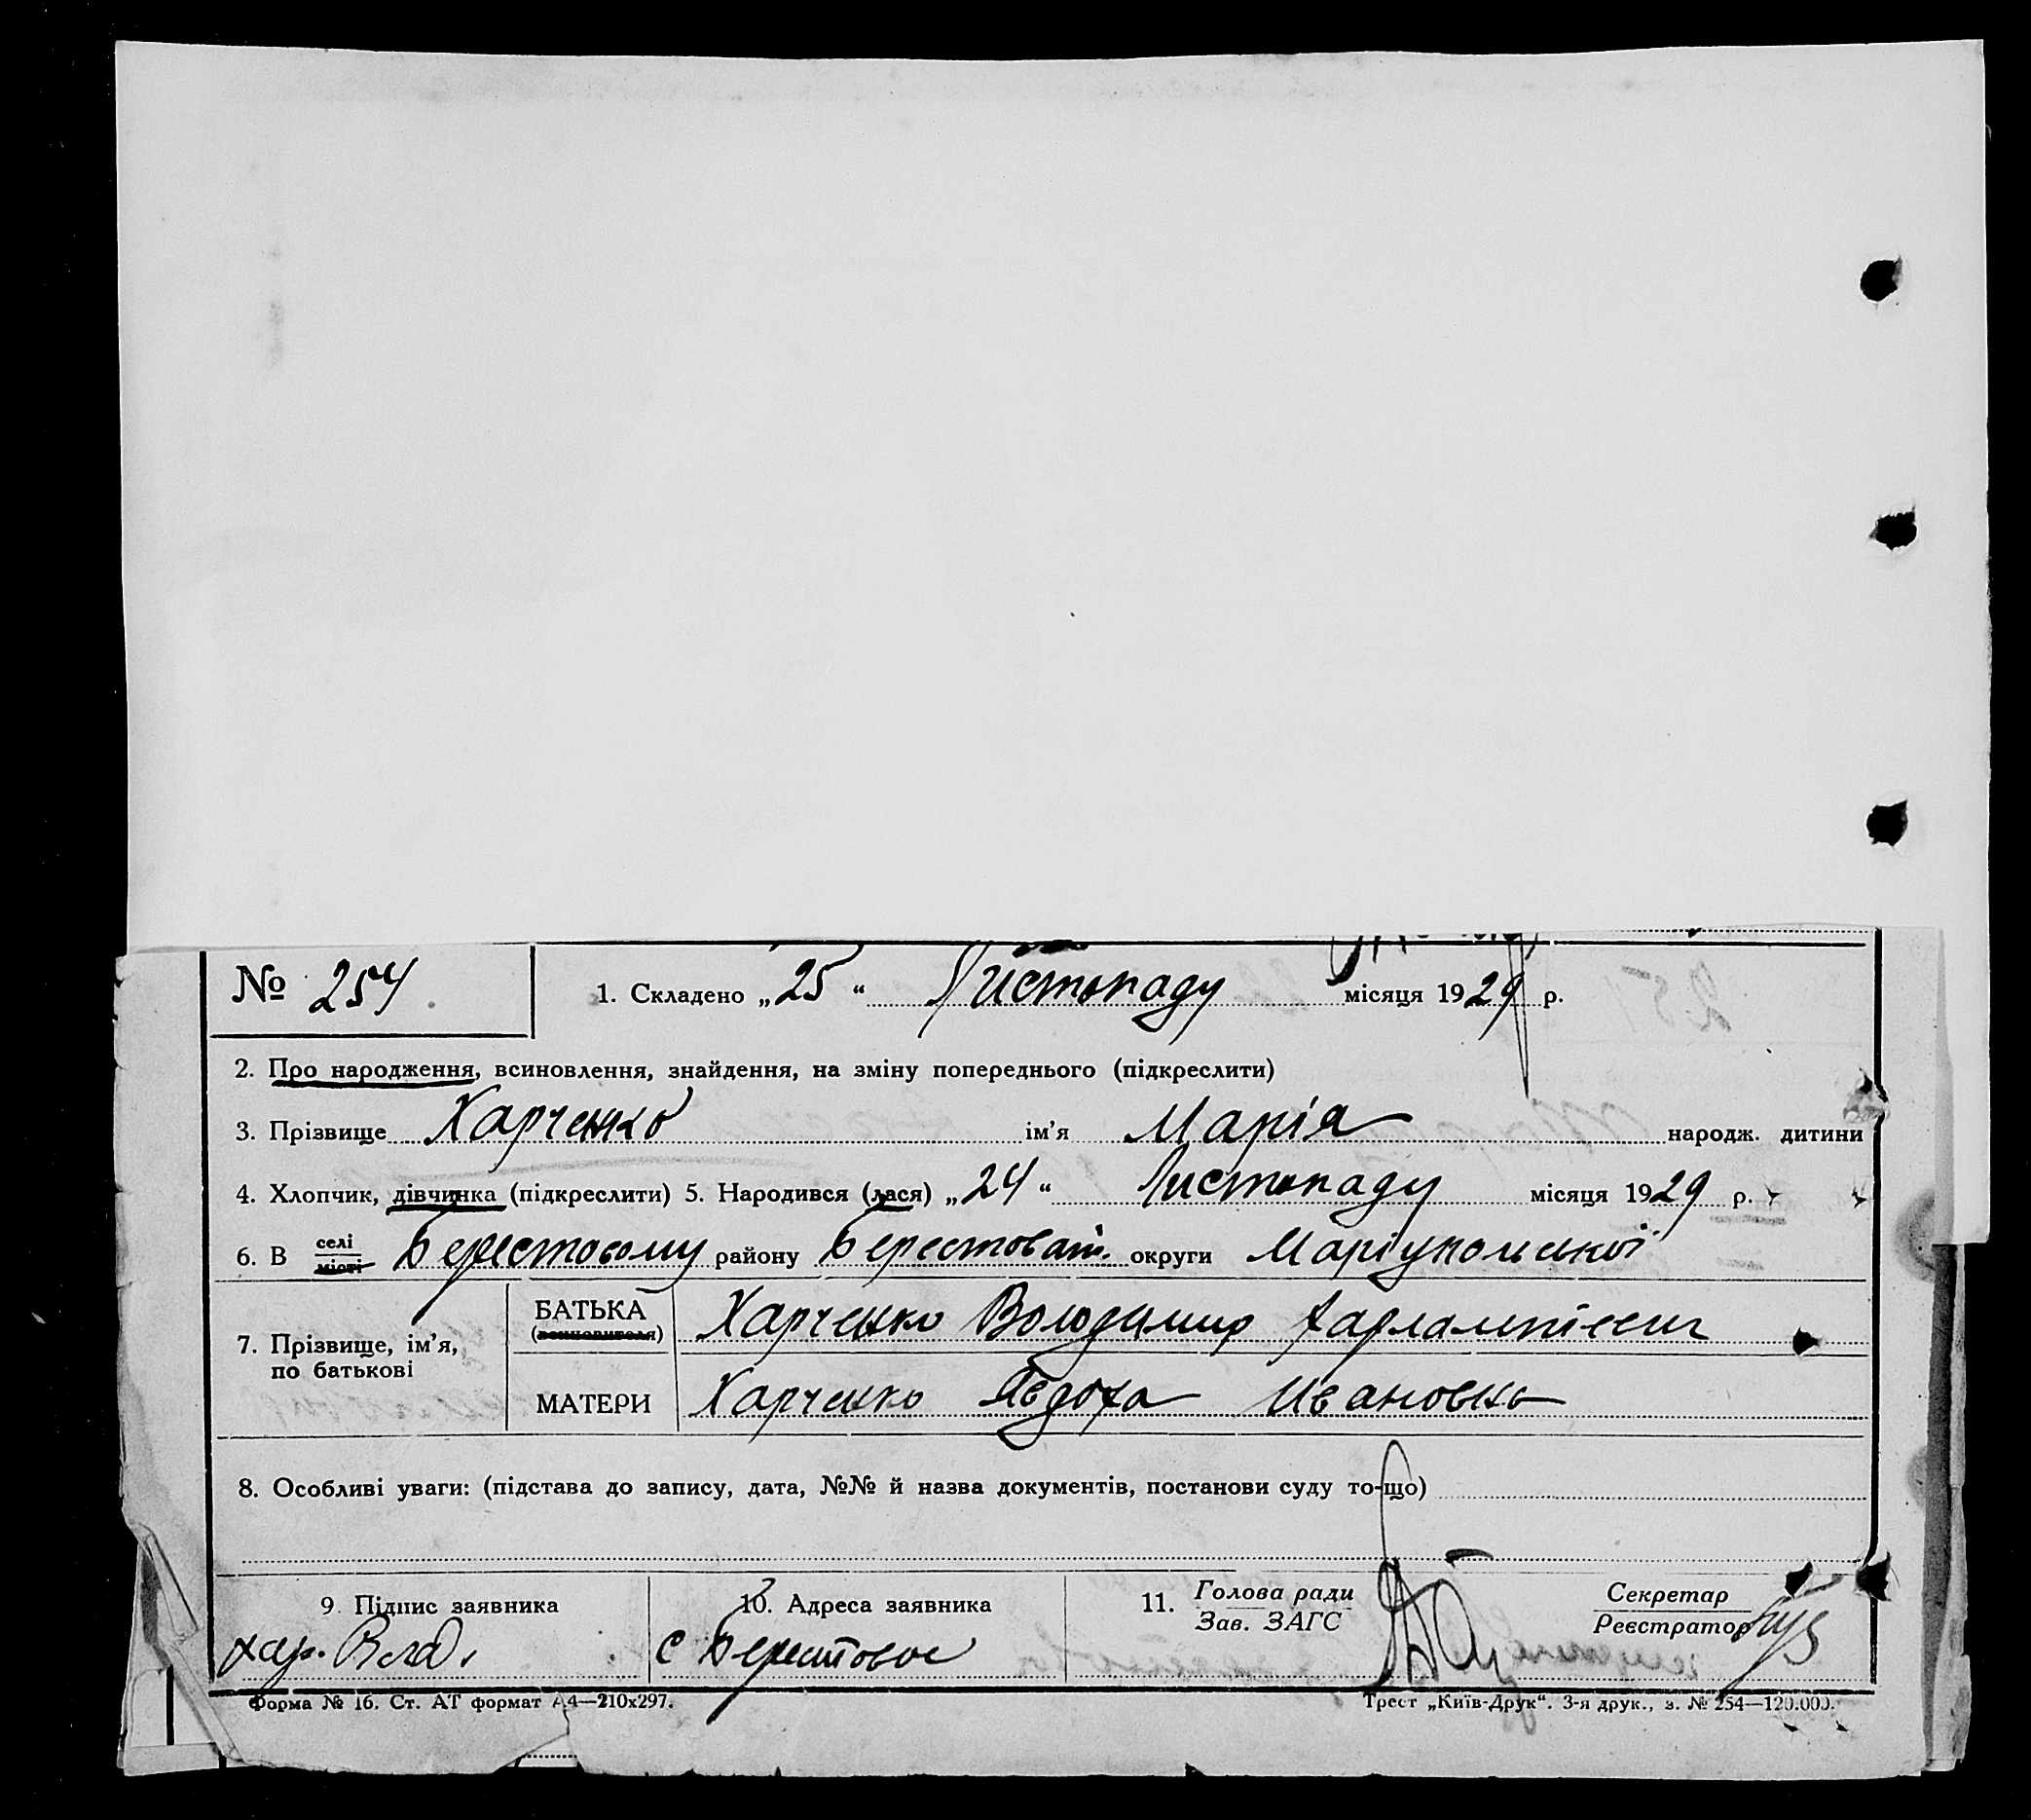 № 254 1. Складено „25“ Листопаду місяця 1929 р.
2. Про народження, всиновлення, знайдення, на зміну попереднього (підкреслити)
3. Прізвище Харченко ім'я Марія народж. дитини
4. Хлопчик, дівчинка (підкреслити) 5. Народився (лася) „24“ Листопаду місяця 1929 р.
6. В селі
місті Берестовому району Берестоват. округи Маріупольської
7. Прізвище, ім'я,
по батькові
БАТЬКА
(всиновителя) Харченко Володимир Харлампієвич
МАТЕРИ Харченко Явдоха Ивановна
8. Особливі уваги: (підстава до запису, дата, №№ й назва документів, постанови суду то-що)
9. Підпис заявника 10. Адреса заявника 11. Голова ради
Зав. ЗАГС Секретар
Реєстратор
хар. Влад. с Берестовое
Форма № 16. Ст. АТ формат А4—210х297. Трест „Київ-Друк“. 3-я друк., з. № 254—120.000.